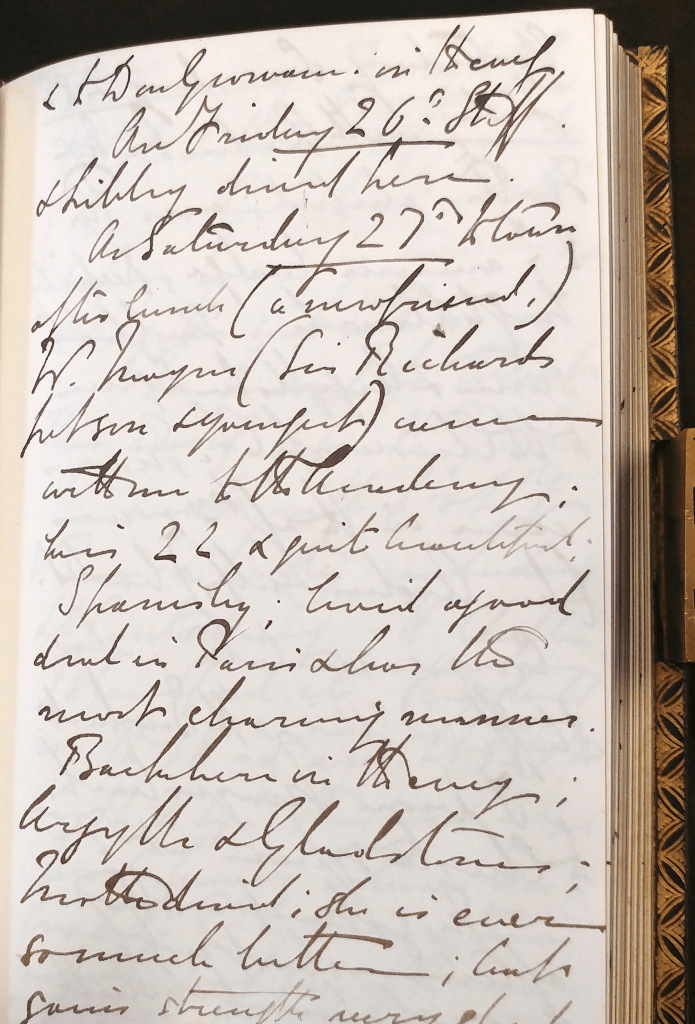 & to Don Giovanni. in the eveng
On Friday 26th Staff
& Libby dined here.
On Saturday 27th to town
after lunch (a new friend,)
W. Mayne (Sir Richards
only son & youngest) came
with me to the Academy;
he is 22 & quite beautiful;
Spanish; lived a good
deal in Paris & has the
most charming manners.
Back here in the eveng;
Argylls & Gladstones;
Mother dined; she is ever
so much better; but
gains strength very